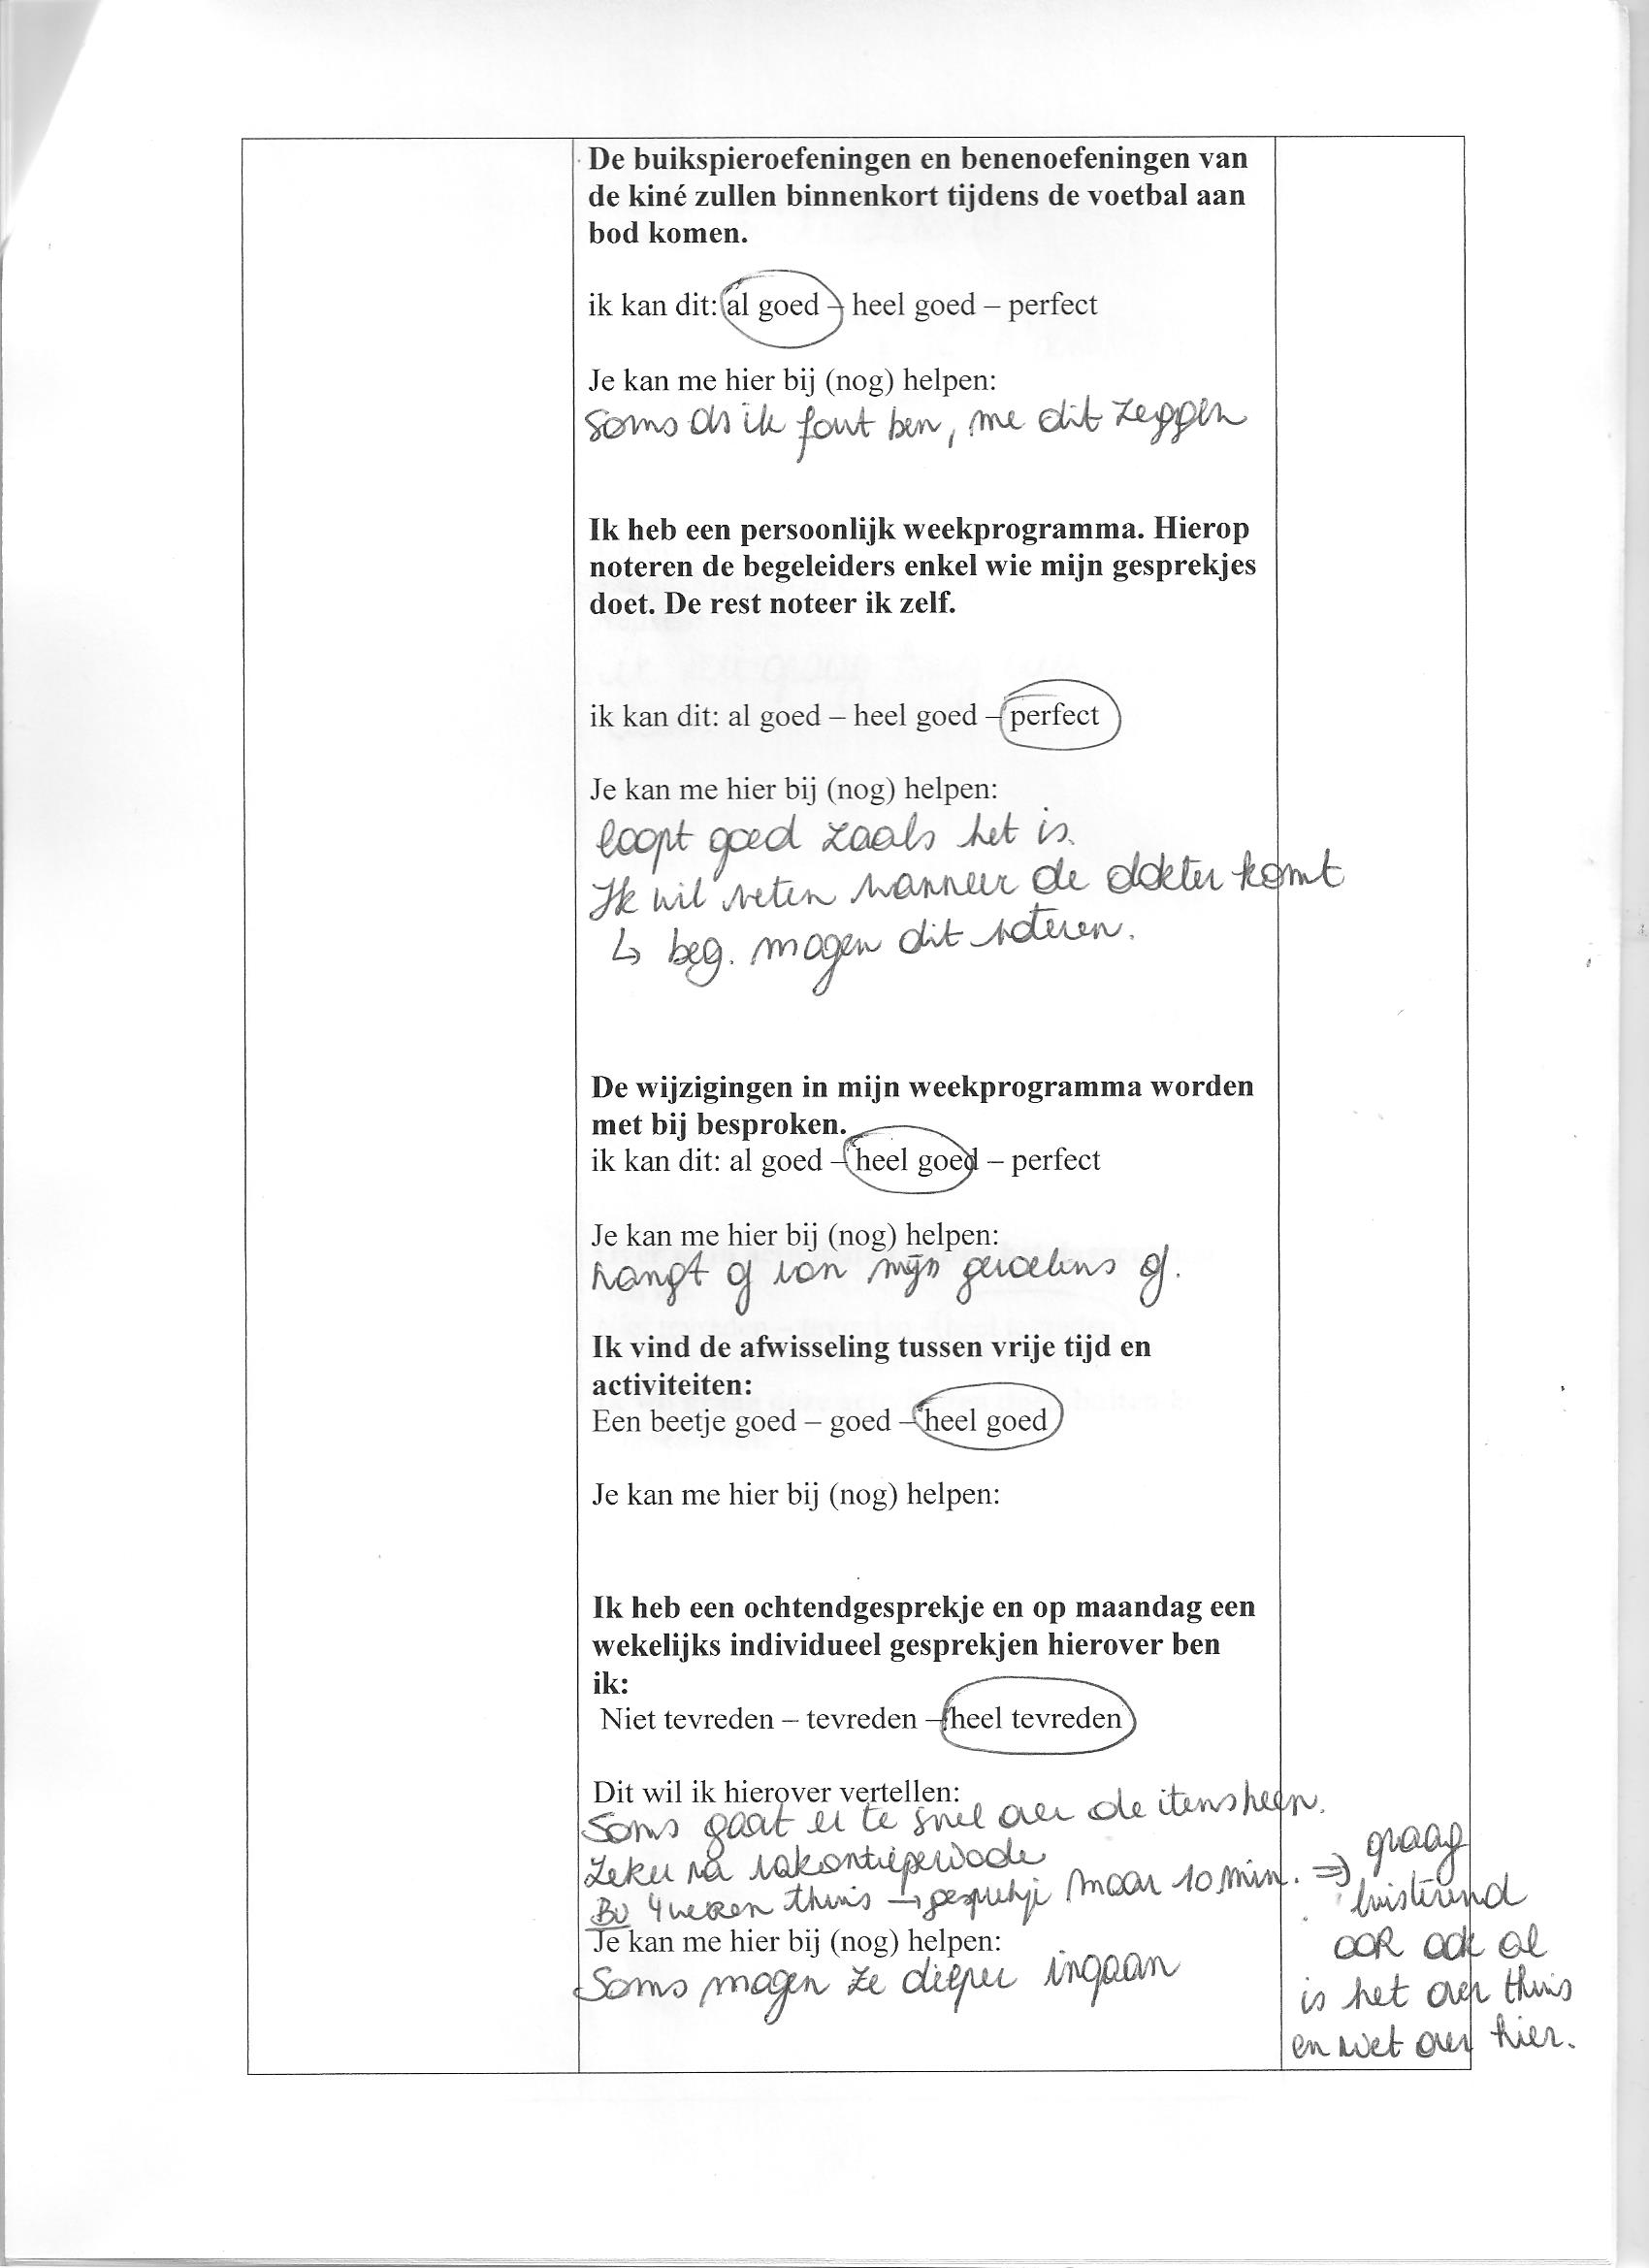 De buikspieroefeningen en benenoefeningen van
de kiné zullen binnenkort tijdens de voetbal aan
bod komen.
ik kan dit: al goed – heel goed – perfect
Je kan me hier bij (nog) helpen:
Soms als ik fout ben, me dit zeggen
Ik heb een persoonlijk weekprogramma. Hierop
noteren de begeleiders enkel wie mijn gesprekjes
doet. De rest noteer ik zelf.
ik kan dit: al goed – heel goed – perfect
Je kan me hier bij (nog) helpen:
loopt goed zoals het is.
Ik wil weten wanneer de dokter komt
↳ beg. mogen dit noteren.
De wijzigingen in mijn weekprogramma worden
met bij besproken.
ik kan dit: al goed – heel goed – perfect
Je kan me hier bij (nog) helpen:
hangt af van mijn gevoelens af.
Ik vind de afwisseling tussen vrije tijd en
activiteiten:
Een beetje goed – goed – heel goed
Je kan me hier bij (nog) helpen:
Ik heb een ochtendgesprekje en op maandag een
wekelijks individueel gesprekjen hierover ben
ik:
Niet tevreden – tevreden – heel tevreden
Dit wil ik hierover vertellen:
Soms gaat er te snel over de items heen.
Zeker na vakantieperiode
BV 4 weken thuis → gesprekje maar 10 min. ⇒ graag
luisterend
OOR ook al
is het over thuis
en niet over hier.
Je kan me hier bij (nog) helpen:
Soms mogen ze dieper ingaan